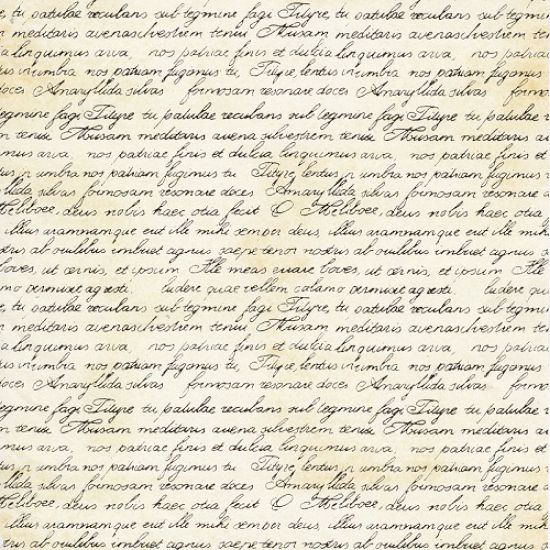 e, tu patulae reculans sub tegmine fagi Tityre, tu patulae reculans sub tegmin
meditaris avenasilvestrem tenui Musam meditaris avenasilvestrem
a linquimus arva, nos patriae finis et dulcia linquimus arva, nos patriae
tus in umbra nos patriam fugimus tu, Tityre, lentus in umbra nos patriam fugimus
doces Amaryllida silvas formosam resonare doces Amaryllida silvas formo
tegmine fagi Tityre tu patulae reculans sub tegmine fagi Tityre, tu patulae
m tenui Musam meditaris avena silvestrem tenui Musam meditaris a
mus arva, nos patriae finis et dulcia linquimus arva, nos patriae fi
s in umbra nos patriam fugimus tu Tityre, lentus in umbra nos patriam fugimus
llida silvas formosam resonare doces Amaryllida silvas formosam resonare
Meliboee, deus nobis haec otia fecit O Meliboee, deus nobis haec otia
illius aramnamque erit ille mihi semper deus, illius aramnamque erit ille
nostris ab ovilibus imbuet agnus saepe tener nostris ab ovilibus imbuet agnus
boves, ut cernis, et ipsum Ille meas errare boves, ut cernis, et ipsum
amo permisit agresti. ludere quae vellem calamo permisit agresti. ludere qua
e, tu patulae reculans sub tegmine fagi Tityre, tu patulae reculans sub tegmin
meditaris avenasilvestrem tenui Musam meditaris avenasilvestrem
a linquimus arva, nos patriae finis et dulcia linquimus arva, nos patriae
tus in umbra nos patriam fugimus tu, Tityre, lentus in umbra nos patriam fugimus
doces Amaryllida silvas formosam resonare doces Amaryllida silvas formo
tegmine fagi Tityre tu patulae reculans sub tegmine fagi Tityre, tu patulae
m tenui Musam meditaris avena silvestrem tenui Musam meditaris a
mus arva, nos patriae finis et dulcia linquimus arva, nos patriae fi
s in umbra nos patriam fugimus tu Tityre, lentus in umbra nos patriam fugimus
llida silvas formosam resonare doces Amaryllida silvas formosam resonare
Meliboee, deus nobis haec otia fecit O Meliboee, deus nobis haec otia
illius aramnamque erit ille mihi semper deus, illius aramnamque erit ille
nostris ab ovilibus imbuet agnus saepe tener nostris ab ovilibus imbuet agnus